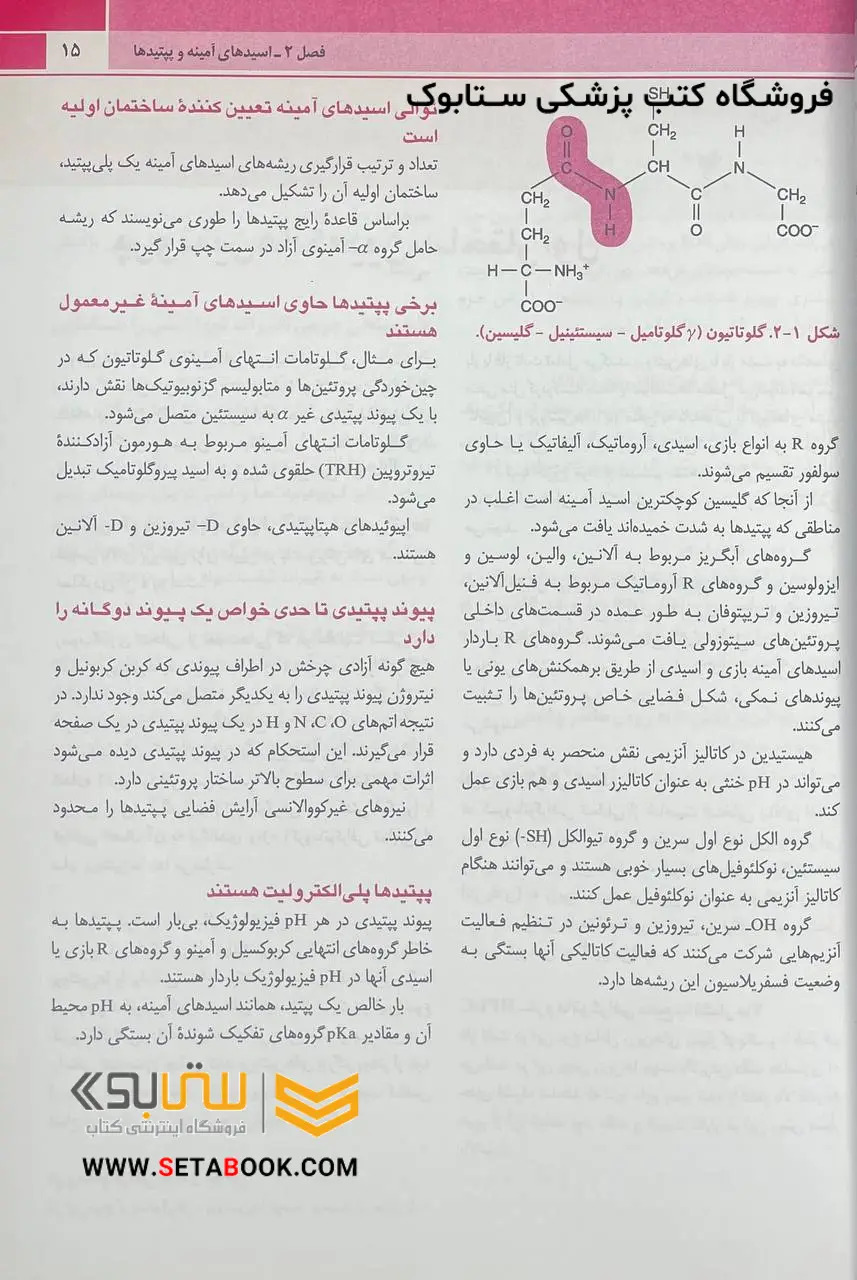 فصل ۲ ـ اسیدهای آمینه و پپتیدها
۱۵
فروشگاه کتب پزشکی ستابوک
SH
CH₂
H
O
C
CH
N
CH₂
N
C
CH₂
H
O
COO⁻
CH₂
H—C—NH₃⁺
COO⁻
شکل ۱-۲. گلوتاتیون (γ گلوتامیل - سیستئینیل - گلیسین).
گروه R به انواع بازی، اسیدی، آروماتیک، آلیفاتیک یا حاوی
سولفور تقسیم می‌شوند.
از آنجا که گلیسین کوچکترین اسید آمینه است اغلب در
مناطقی که پپتیدها به شدت خمیده‌اند یافت می‌شود.
گروه‌های آبگریز مربوط به آلانین، والین، لوسین و
ایزولوسین و گروه‌های R آروماتیک مربوط به فنیل‌آلانین،
تیروزین و تریپتوفان به طور عمده در قسمت‌های داخلی
پروتئین‌های سیتوزولی یافت می‌شوند. گروه‌های R باردار
اسیدهای آمینه بازی و اسیدی از طریق برهمکنش‌های یونی یا
پیوندهای نمکی، شکل فضایی خاص پروتئین‌ها را تثبیت
می‌کنند.
هیستیدین در کاتالیز آنزیمی نقش منحصر به فردی دارد و
می‌تواند در pH خنثی به عنوان کاتالیزر اسیدی و هم بازی عمل
کند.
گروه الکل نوع اول سرین و گروه تیوالکل (SH-) نوع اول
سیستئین، نوکلئوفیل‌های بسیار خوبی هستند و می‌توانند هنگام
کاتالیز آنزیمی به عنوان نوکلئوفیل عمل کنند.
گروه OH- سرین، تیروزین و ترئونین در تنظیم فعالیت
آنزیم‌هایی شرکت می‌کنند که فعالیت کاتالیکی آنها بستگی به
وضعیت فسفریلاسیون این ریشه‌ها دارد.
توالی اسیدهای آمینه تعیین کنندهٔ ساختمان اولیه
است
تعداد و ترتیب قرارگیری ریشه‌های اسیدهای آمینه یک پلی‌پپتید،
ساختمان اولیه آن را تشکیل می‌دهد.
براساس قاعدهٔ رایج پپتیدها را طوری می‌نویسند که ریشه
حامل گروه α- آمینوی آزاد در سمت چپ قرار گیرد.
برخی پپتیدها حاوی اسیدهای آمینهٔ غیرمعمول
هستند
برای مثال، گلوتامات انتهای آمینوی گلوتاتیون که در
چین‌خوردگی پروتئین‌ها و متابولیسم گزنوبیوتیک‌ها نقش دارند،
با یک پیوند پپتیدی غیر α به سیستئین متصل می‌شود.
گلوتامات انتهای آمینو مربوط به هورمون آزادکنندهٔ
تیروتروپین (TRH) حلقوی شده و به اسید پیروگلوتامیک تبدیل
می‌شود.
اپیوئیدهای هپتاپپتیدی، حاوی D- تیروزین و D- آلانین
هستند.
پیوند پپتیدی تا حدی خواص یک پیوند دوگانه را
دارد
هیچ گونه آزادی چرخش در اطراف پیوندی که کربن کربونیل و
نیتروژن پیوند پپتیدی را به یکدیگر متصل می‌کند وجود ندارد. در
نتیجه اتم‌های N ،C ،O و H در یک پیوند پپتیدی در یک صفحه
قرار می‌گیرند. این استحکام که در پیوند پپتیدی دیده می‌شود
اثرات مهمی برای سطوح بالاتر ساختار پروتئینی دارد.
نیروهای غیرکووالانسی آرایش فضایی پپتیدها را محدود
می‌کنند.
پپتیدها پلی‌الکترولیت هستند
پیوند پپتیدی در هر pH فیزیولوژیک، بی‌بار است. پپتیدها به
خاطر گروه‌های انتهایی کربوکسیل و آمینو و گروه‌های R بازی یا
اسیدی آنها در pH فیزیولوژیک باردار هستند.
بار خالص یک پپتید، همانند اسیدهای آمینه، به pH محیط
آن و مقادیر pKa گروه‌های تفکیک شوندهٔ آن بستگی دارد.
ستابوک
فروشگاه اینترنتی کتاب
WWW.SETABOOK.COM